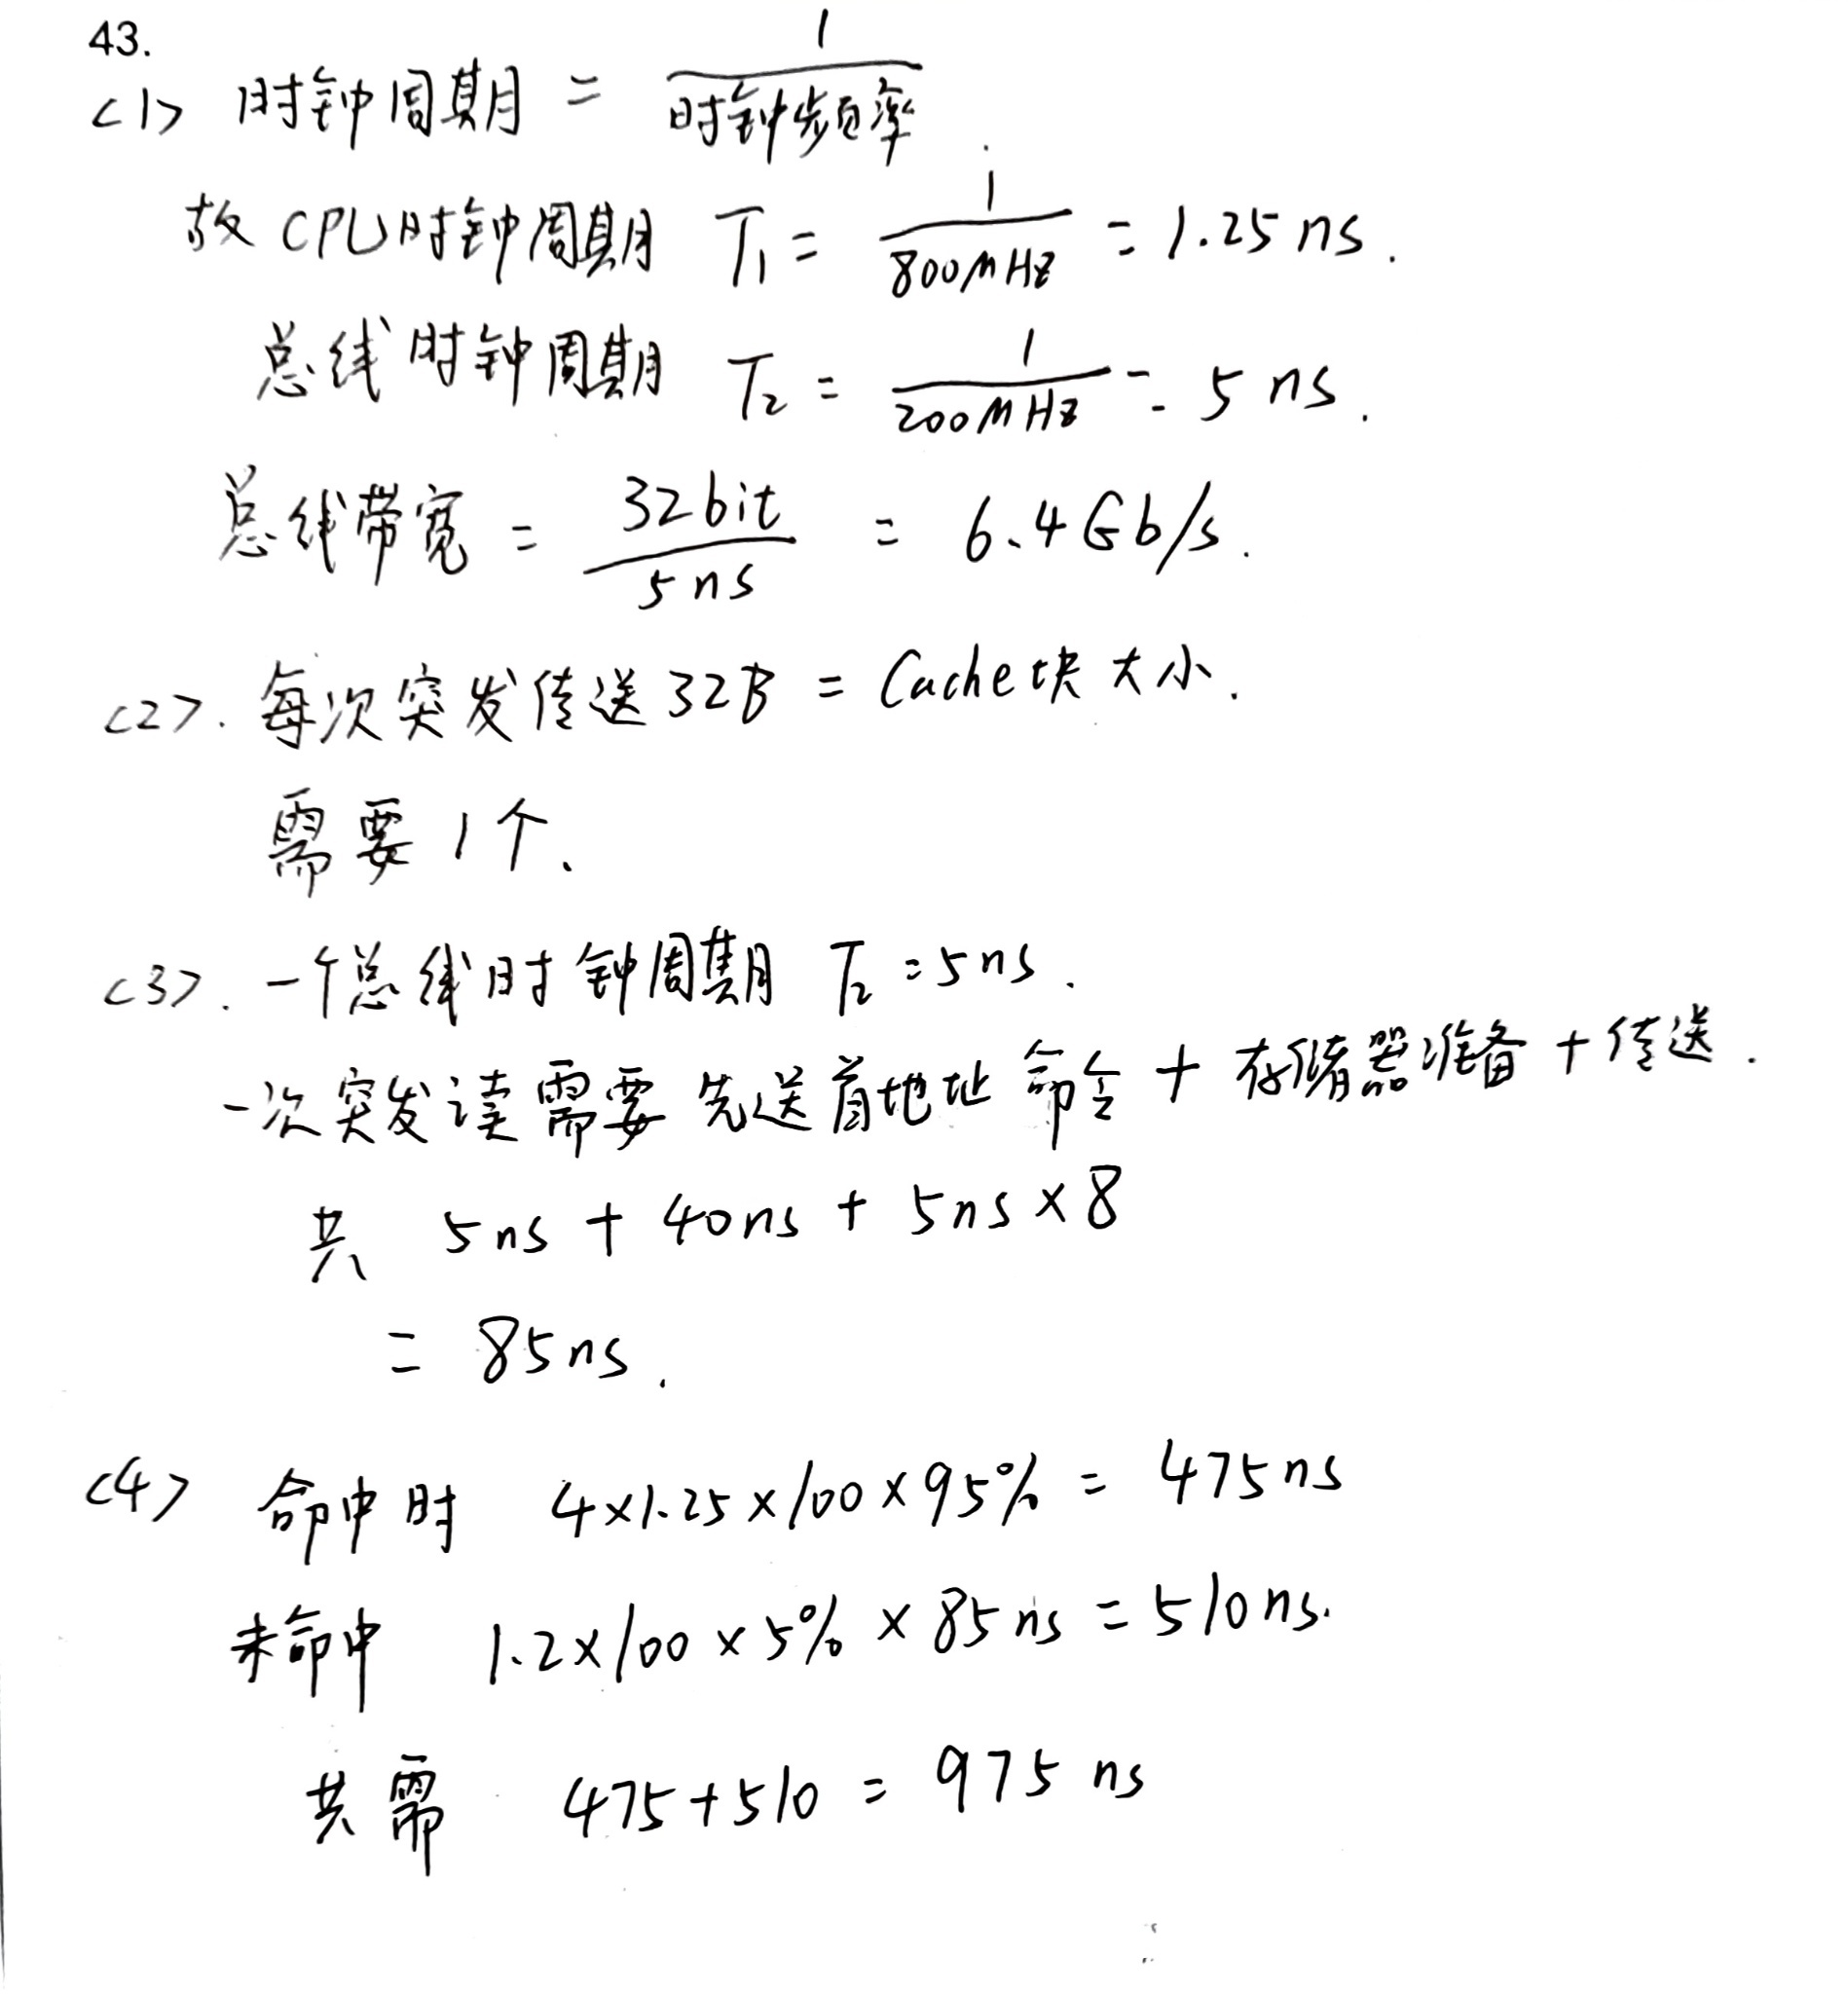 43.
<1> 时钟周期 = 1/时钟频率.
故 CPU时钟周期 T1 = 1/800MHz = 1.25 ns.
总线时钟周期 T2 = 1/200MHz = 5 ns.
总线带宽 = 32bit/5ns = 6.4Gb/s.
<2>. 每次突发传送32B = Cache块大小.
需要1个.
<3>. 一个总线时钟周期 T2 = 5ns.
一次突发读需要先送首地址命令 + 存储器准备 + 传送.
共 5ns + 40ns + 5ns×8
= 85ns.
<4> 命中时 4×1.25×100×95% = 475ns
未命中 1.2×100×5% × 85ns = 510ns.
共需 475+510 = 975 ns